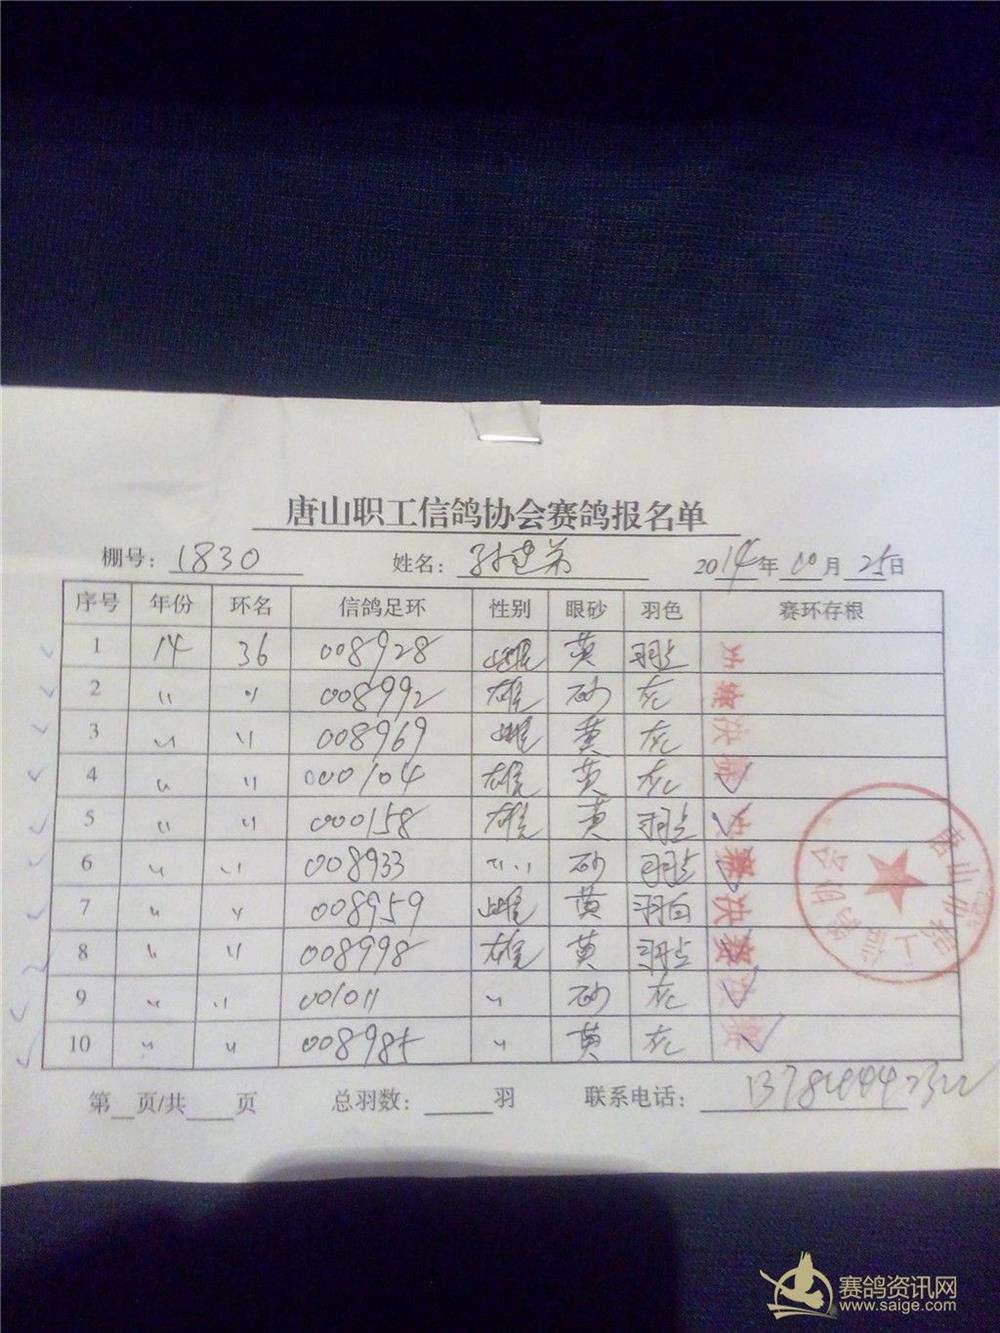 唐山职工信鸽协会赛鸽报名单
棚号：1830 姓名：孙建弟 2014年10月25日
序号 年份 环名 信鸽足环 性别 眼砂 羽色 赛环存根
1 14 36 008928 雌 黄 雨点
2 〃 〃 008992 雄 砂 灰
3 〃 〃 008969 雌 黄 灰
4 〃 〃 000104 雄 黄 灰
5 〃 〃 000158 雄 黄 雨点
6 〃 〃 008933 〃 砂 雨点
7 〃 〃 008959 雌 黄 雨白
8 〃 〃 008998 雄 黄 雨点
9 〃 〃 001011 〃 砂 灰
10 〃 〃 008985 〃 黄 灰
第 页/共 页 总羽数： 羽 联系电话：
赛鸽资讯网
www.saige.com